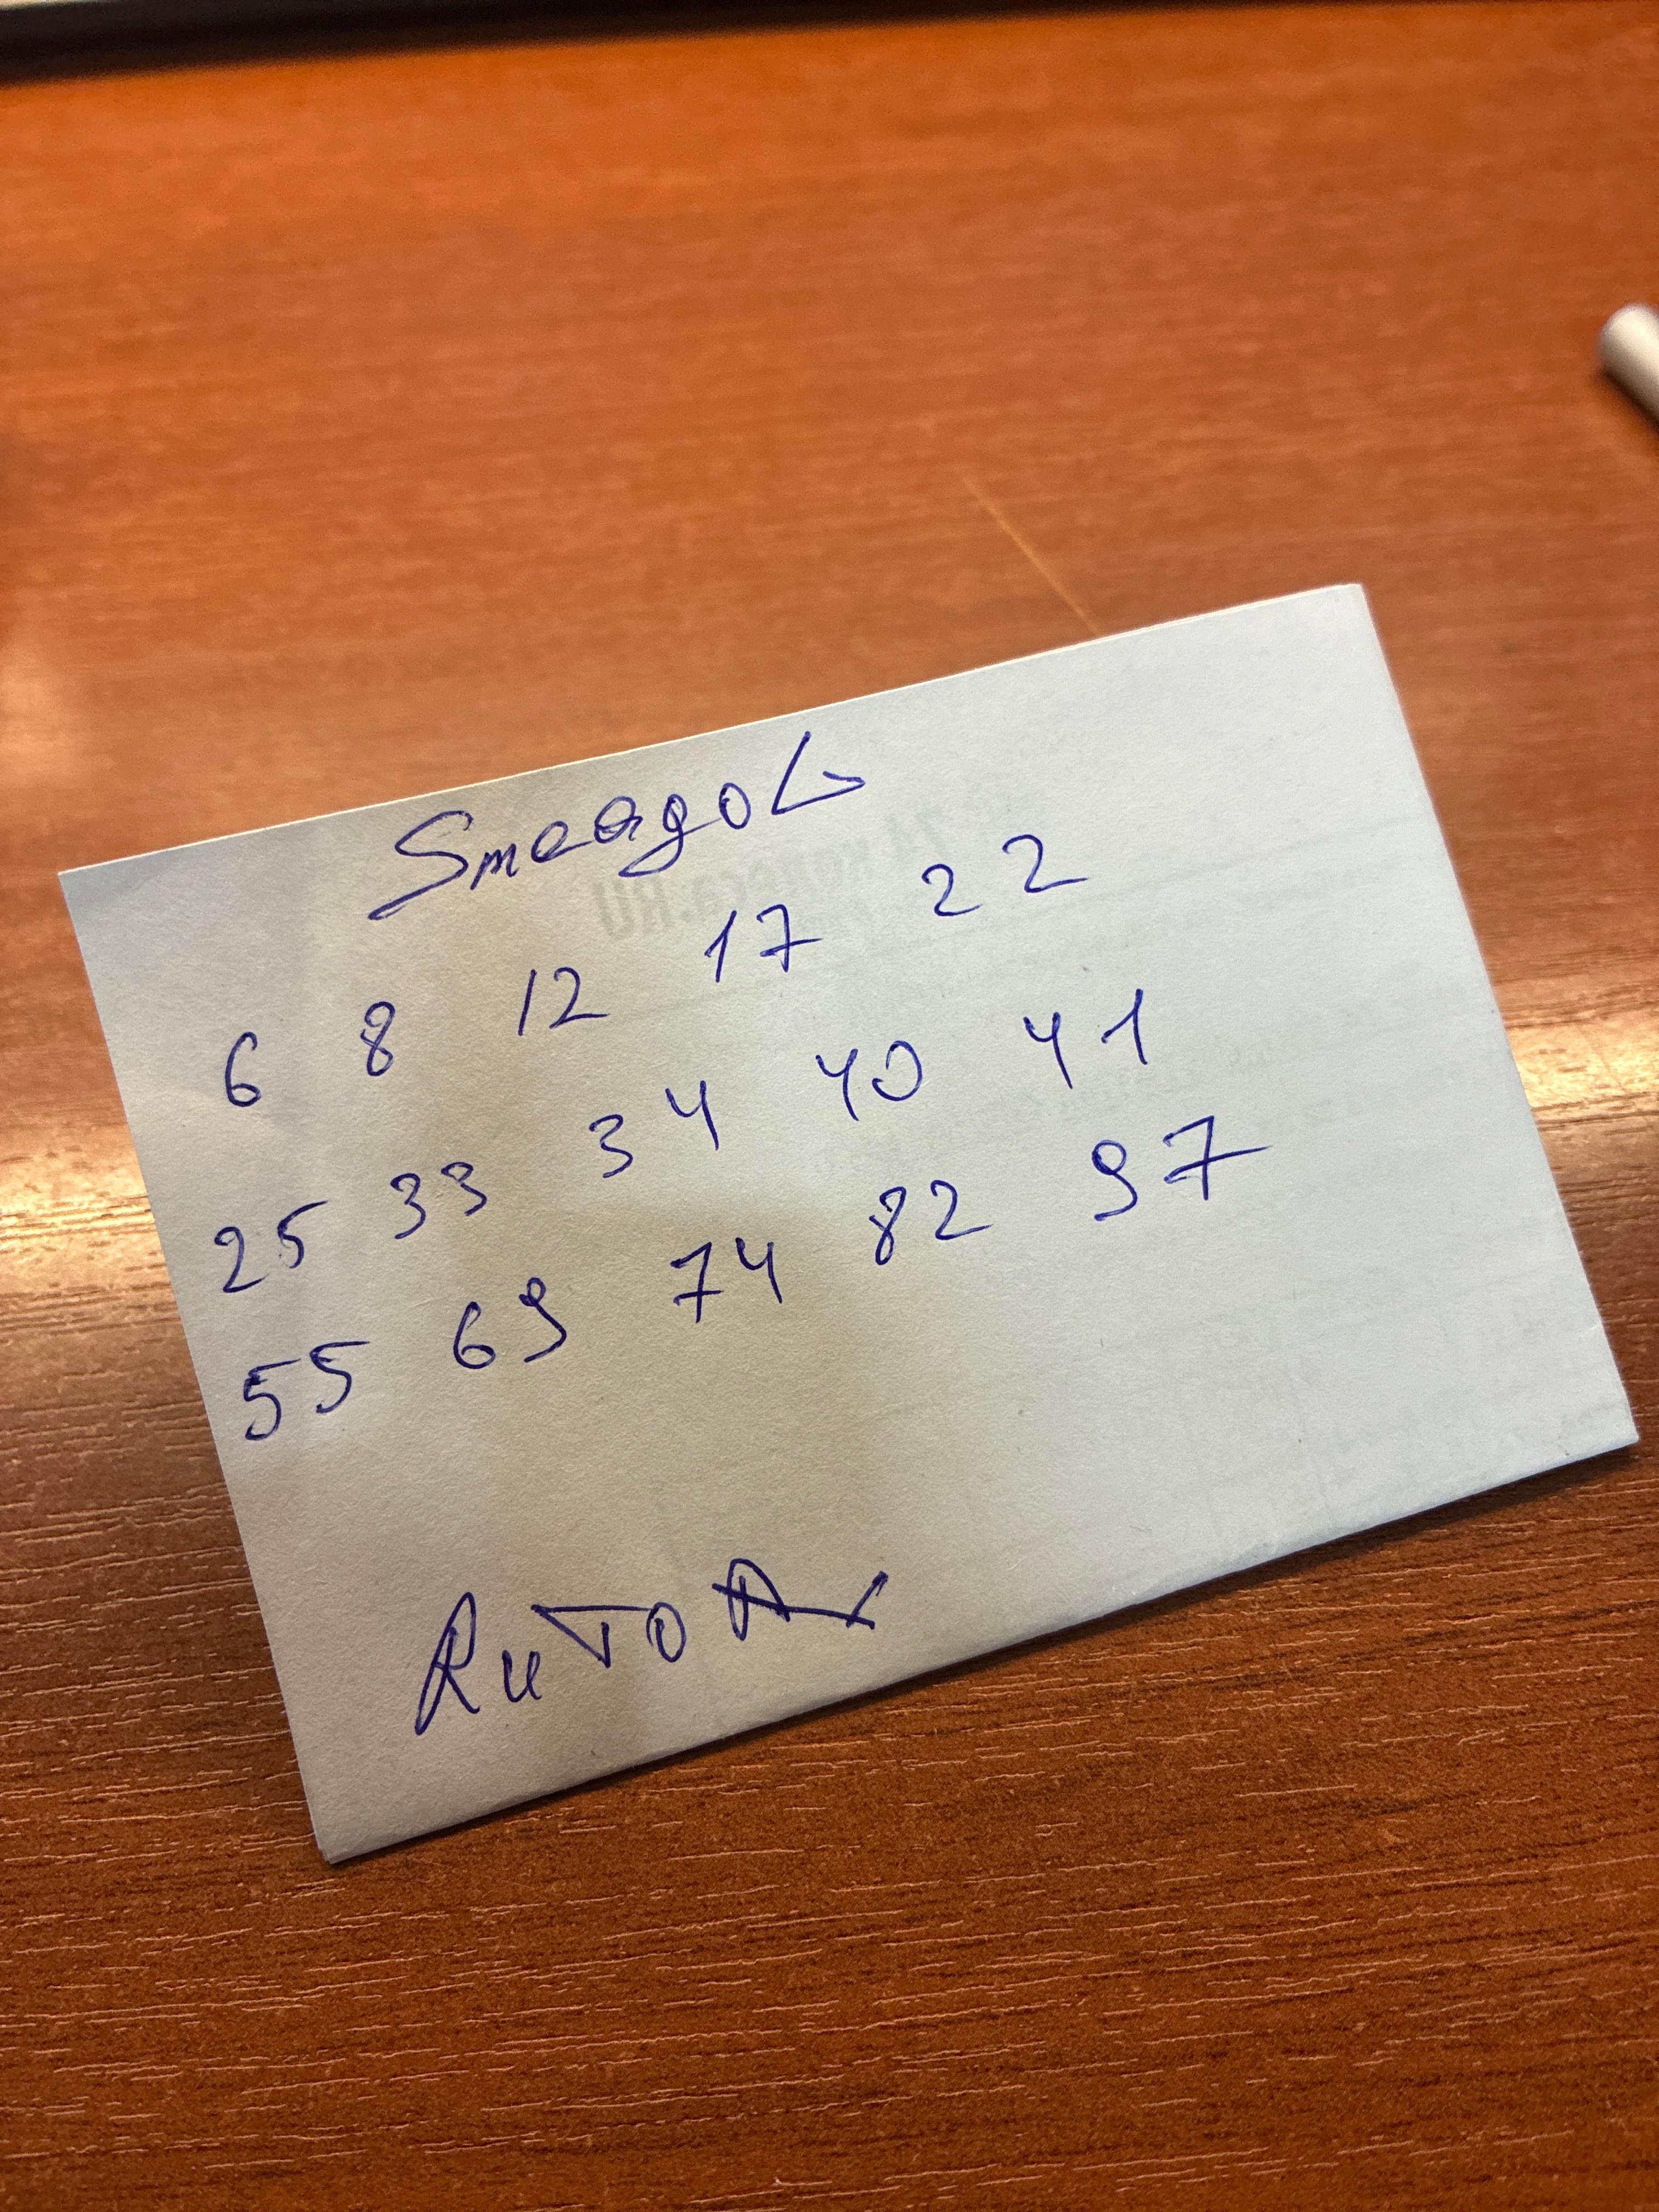 Smeagol
6 8 12 17 22
25 33 34 40 41
55 69 74 82 97
RuTOR